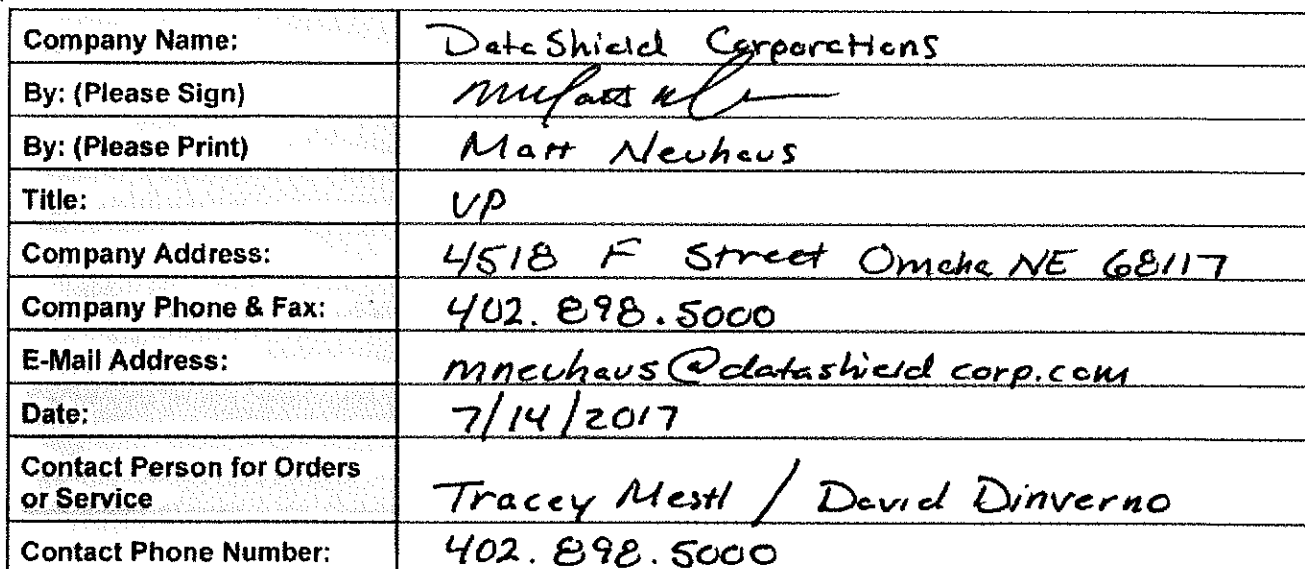 Company Name: DataShield Corporations
By: (Please Sign)
By: (Please Print) Matt Neuhaus
Title: VP
Company Address: 4518 F Street Omaha NE 68117
Company Phone & Fax: 402.898.5000
E-Mail Address: mneuhaus@datashieldcorp.com
Date: 7/14/2017
Contact Person for Orders
or Service Tracey Mestl / David Dinverno
Contact Phone Number: 402.898.5000